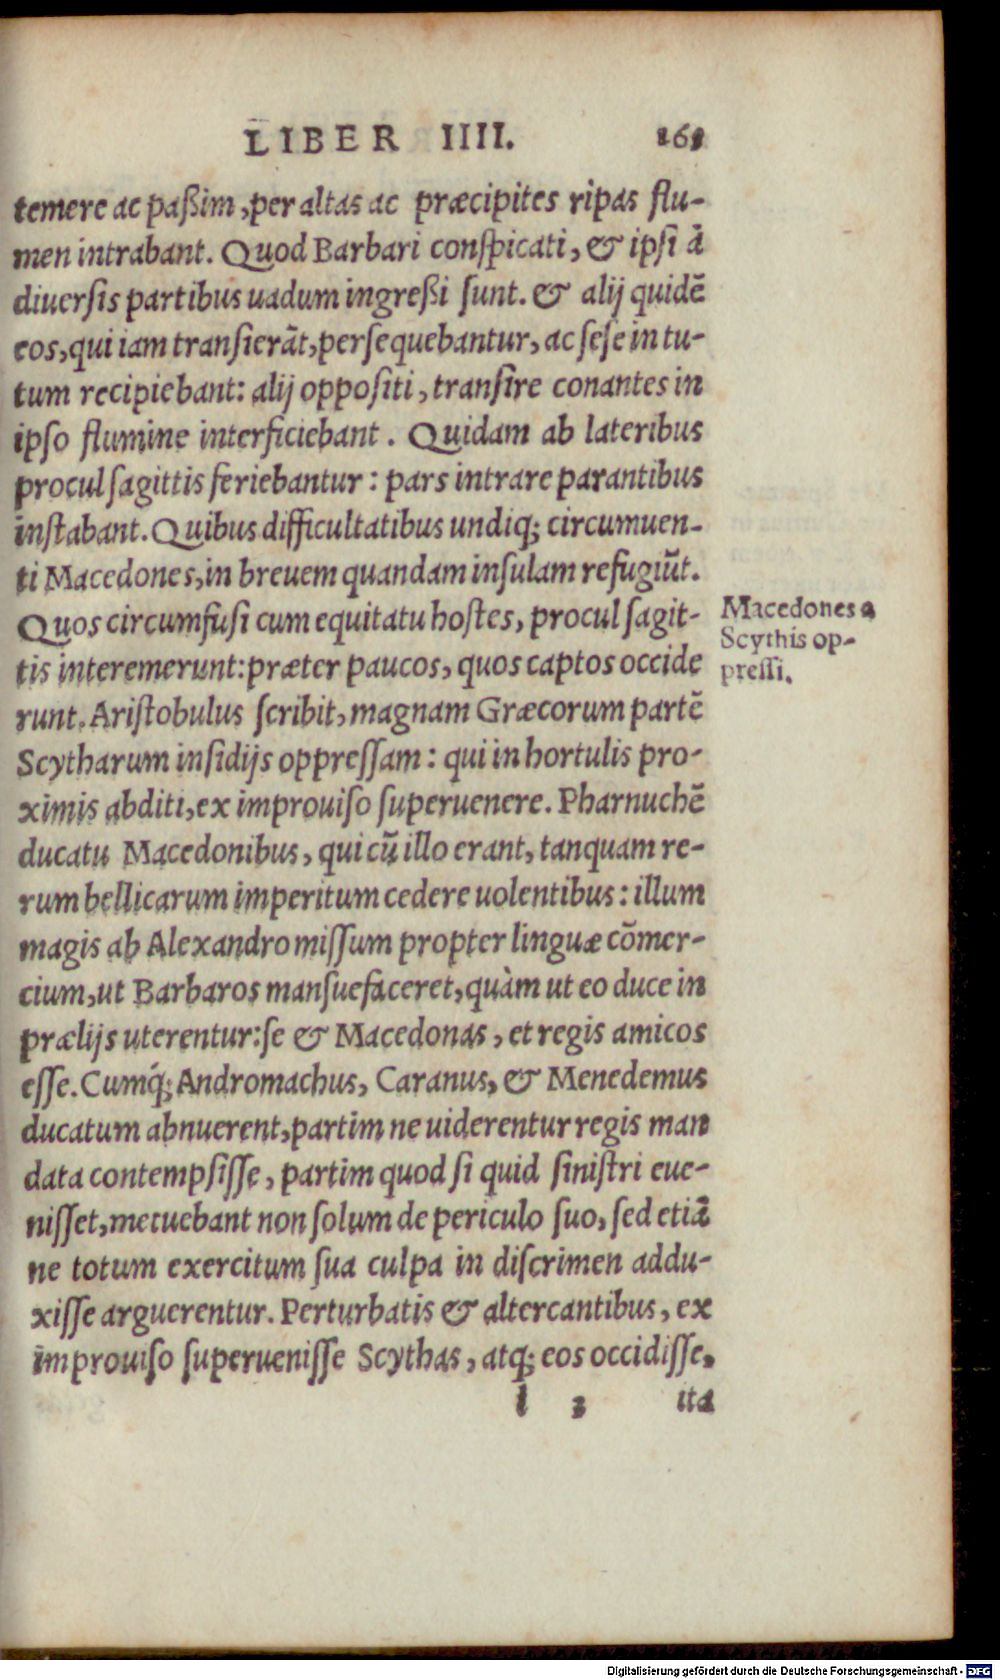 LIBER IIII. 161
temere ac paßim, per altas ac præcipites ripas flu-
men intrabant. Quod Barbari conspicati, & ipsi à
diuersis partibus uadum ingreßi sunt. & alij quidē
eos, qui iam transierāt, persequebantur, ac sese in tu-
tum recipiebant: alij oppositi, transire conantes in
ipso flumine interficiebant. Quidam ab lateribus
procul sagittis feriebantur: pars intrare parantibus
instabant. Quibus difficultatibus undiq; circumuen-
ti Macedones, in breuem quandam insulam refugiūt.
Quos circumfusi cum equitatu hostes, procul sagit-
tis interemerunt: præter paucos, quos captos occide
runt. Aristobulus scribit, magnam Græcorum partē
Scytharum insidijs oppressam: qui in hortulis pro-
ximis abditi, ex improuiso superuenere. Pharnuchē
ducatu Macedonibus, qui cū illo erant, tanquam re-
rum bellicarum imperitum cedere uolentibus: illum
magis ab Alexandro missum propter linguæ cōmer-
cium, ut Barbaros mansuefaceret, quàm ut eo duce in
prælijs uterentur: se & Macedonas, et regis amicos
esse. Cumq́; Andromachus, Caranus, & Menedemus
ducatum abnuerent, partim ne uiderentur regis man
data contempsisse, partim quod si quid sinistri eue-
nisset, metuebant non solum de periculo suo, sed etiā
ne totum exercitum sua culpa in discrimen addu-
xisse arguerentur. Perturbatis & altercantibus, ex
improuiso superuenisse Scythas, atq; eos occidisse,
l 3 ita
Macedones a
Scythis op-
pressi.
Digitalisierung gefördert durch die Deutsche Forschungsgemeinschaft - DFG